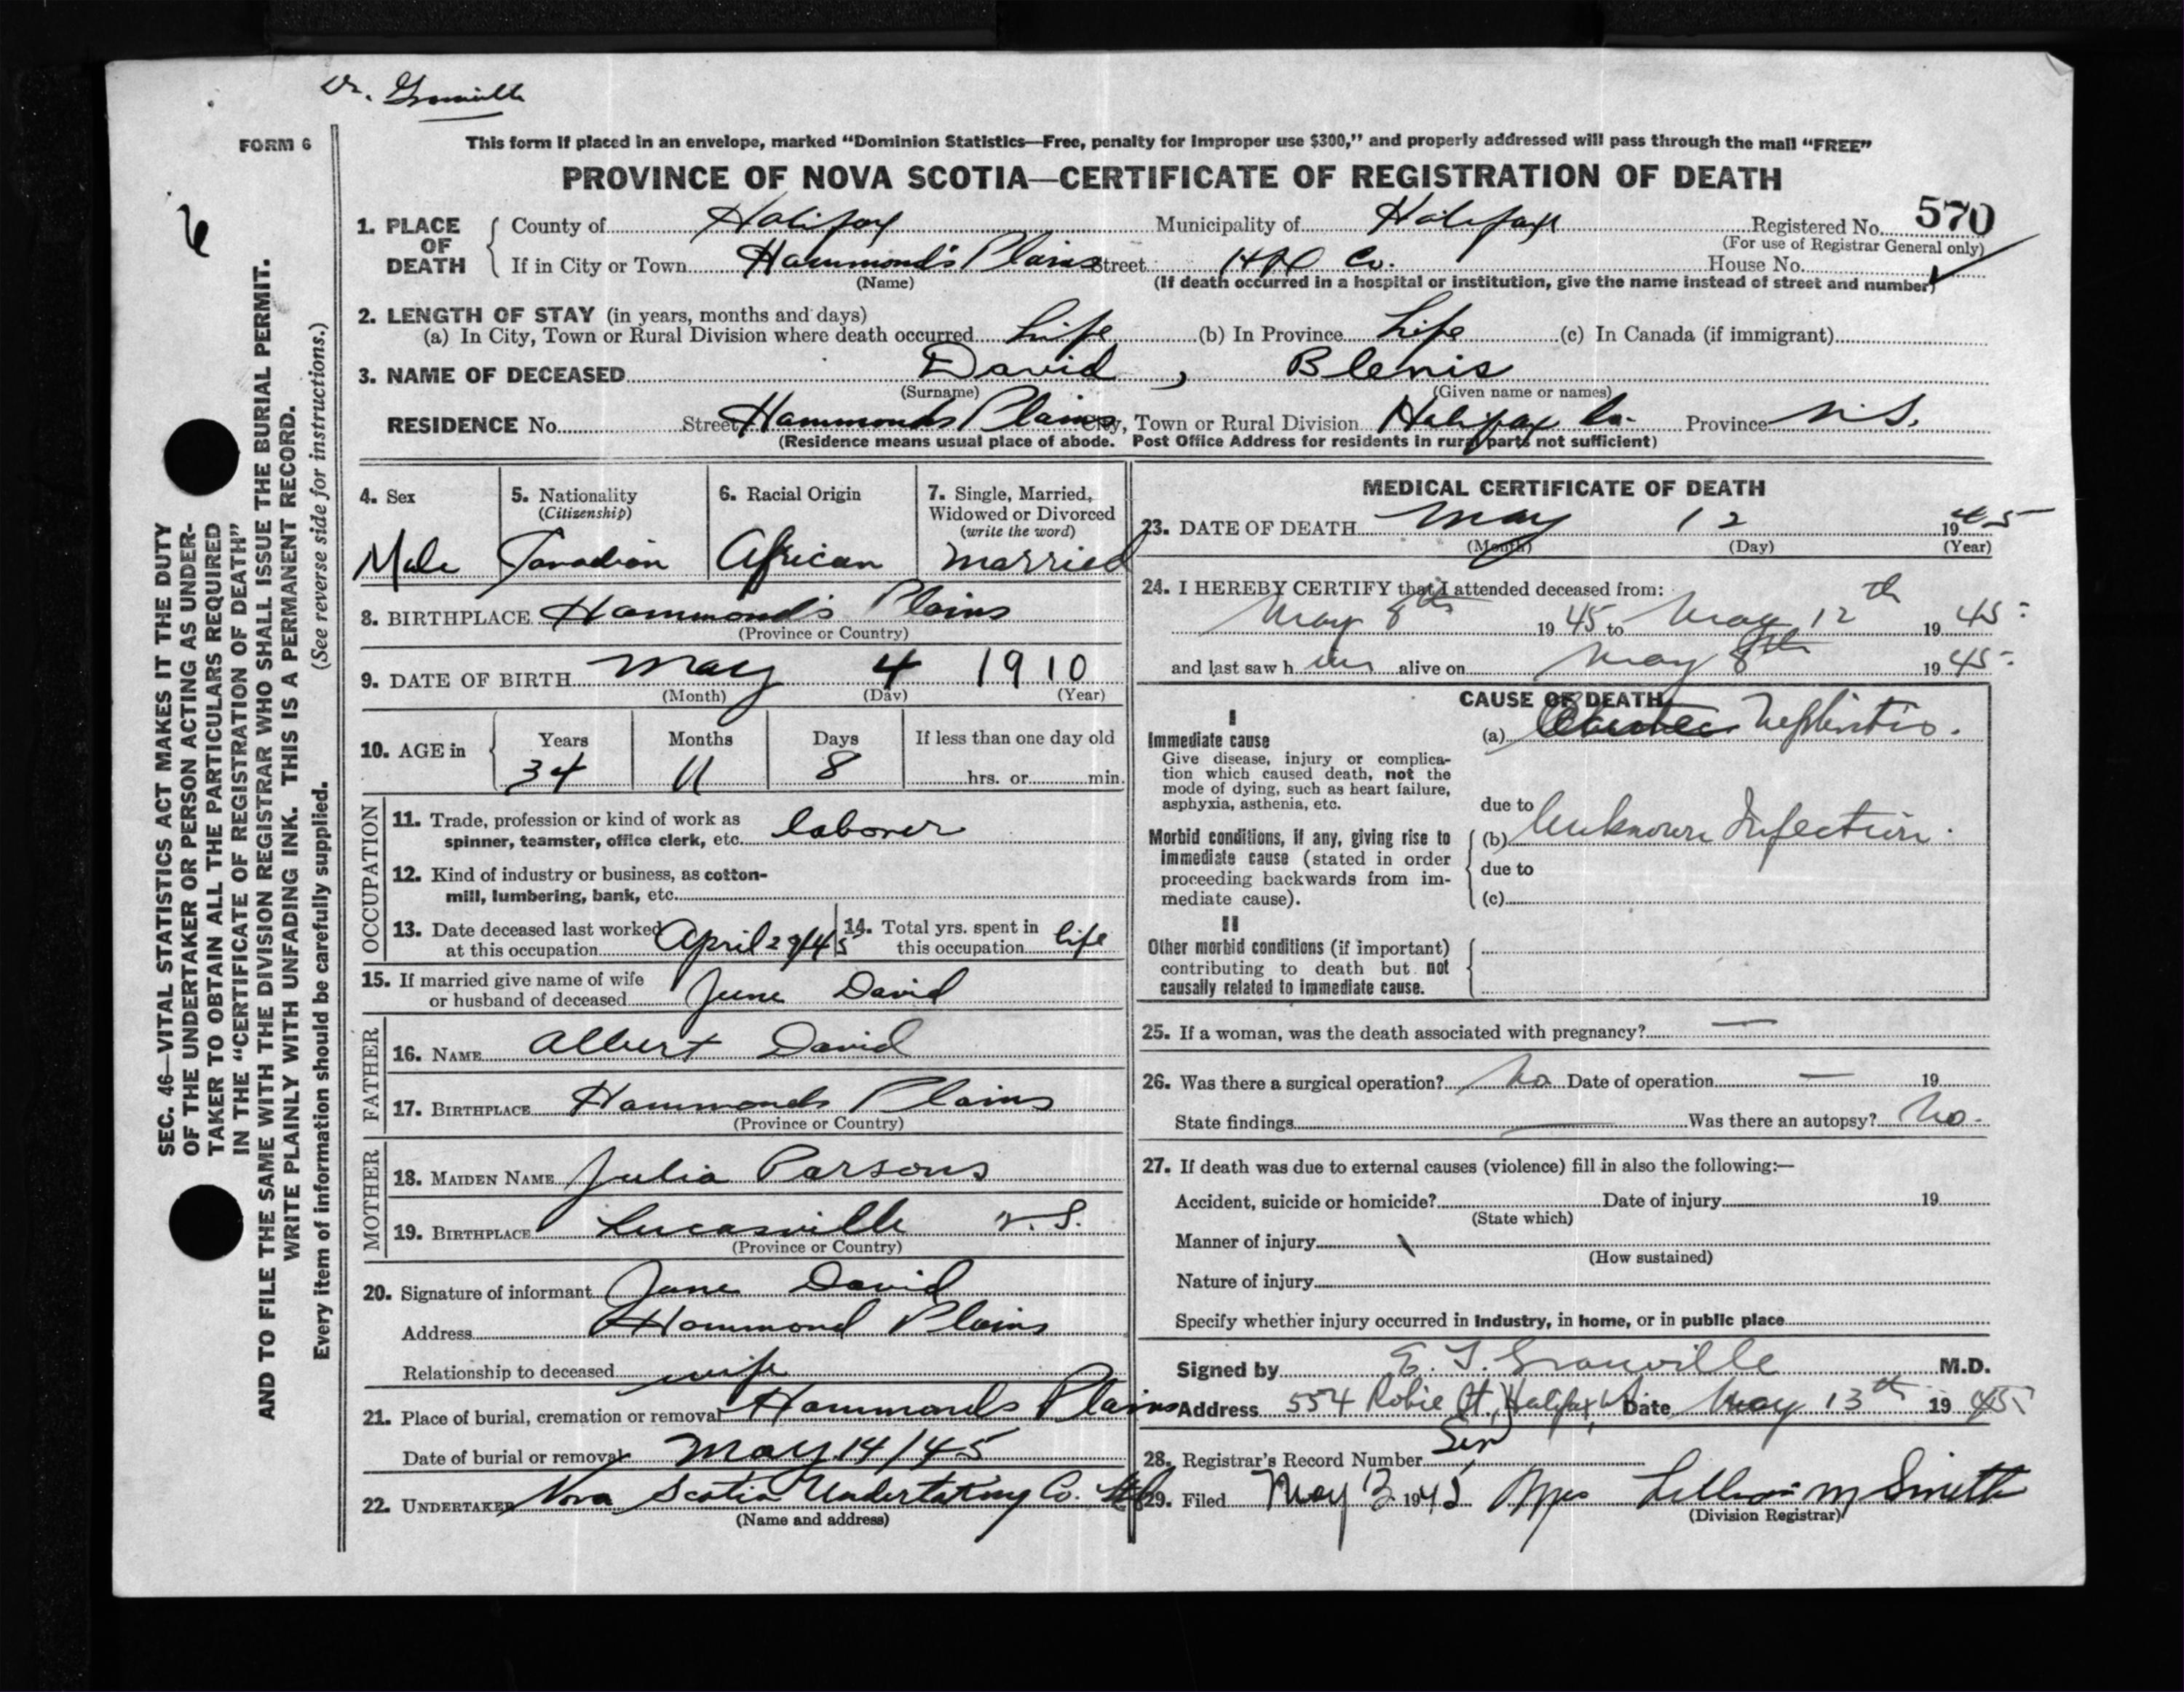 Dr. Granville
FORM 6
This form if placed in an envelope, marked “Dominion Statistics—Free, penalty for improper use $300,” and properly addressed will pass through the mail “FREE”
PROVINCE OF NOVA SCOTIA—CERTIFICATE OF REGISTRATION OF DEATH
570
1. PLACE OF DEATH County of Halifax Municipality of Halifax Registered No.
(For use of Registrar General only)
If in City or Town Hammond's Plains Street Hfx Co. House No.
(Name) (If death occurred in a hospital or institution, give the name instead of street and number)
2. LENGTH OF STAY (in years, months and days)
(a) In City, Town or Rural Division where death occurred Life (b) In Province Life (c) In Canada (if immigrant)
3. NAME OF DECEASED David , Blenis
(Surname) (Given name or names)
RESIDENCE No. Street Hammonds Plains City, Town or Rural Division Halifax Co. Province N.S.
(Residence means usual place of abode. Post Office Address for residents in rural parts not sufficient)
4. Sex
Male
5. Nationality
(Citizenship)
Canadian
6. Racial Origin
African
7. Single, Married,
Widowed or Divorced
(write the word)
married
8. BIRTHPLACE Hammond's Plains
(Province or Country)
9. DATE OF BIRTH May 4 1910
(Month) (Day) (Year)
10. AGE in Years Months Days If less than one day old
34 11 8 hrs. or min.
OCCUPATION
11. Trade, profession or kind of work as
spinner, teamster, office clerk, etc. laborer
12. Kind of industry or business, as cotton-
mill, lumbering, bank, etc.
13. Date deceased last worked
at this occupation April 29/45
14. Total yrs. spent in
this occupation life
15. If married give name of wife
or husband of deceased June David
FATHER
16. NAME Albert David
17. BIRTHPLACE Hammonds Plains
(Province or Country)
MOTHER
18. MAIDEN NAME Julia Parsons
19. BIRTHPLACE Lucasville N.S.
(Province or Country)
20. Signature of informant June David
Address Hammond Plains
Relationship to deceased wife
21. Place of burial, cremation or removal Hammonds Plains
Date of burial or removal May 14/45
22. UNDERTAKER Nova Scotia Undertaking Co.
(Name and address)
MEDICAL CERTIFICATE OF DEATH
23. DATE OF DEATH May 12 1945
(Month) (Day) (Year)
24. I HEREBY CERTIFY that I attended deceased from:
May 8th 1945 to May 12th 1945
and last saw him alive on May 8th 1945
CAUSE OF DEATH
I
Immediate cause
Give disease, injury or complica-
tion which caused death, not the
mode of dying, such as heart failure,
asphyxia, asthenia, etc.
(a) Nephritis.
due to
Morbid conditions, if any, giving rise to
immediate cause (stated in order
proceeding backwards from im-
mediate cause).
(b) Unknown Infection
due to
(c)
II
Other morbid conditions (if important)
contributing to death but not
causally related to immediate cause.
25. If a woman, was the death associated with pregnancy? —
26. Was there a surgical operation? No Date of operation — 19
State findings — Was there an autopsy? No.
27. If death was due to external causes (violence) fill in also the following:—
Accident, suicide or homicide? Date of injury 19
(State which)
Manner of injury
(How sustained)
Nature of injury
Specify whether injury occurred in industry, in home, or in public place
Signed by E. T. Granville M.D.
Address 554 Robie St., Halifax Date May 13th 1945
28. Registrar's Record Number
29. Filed May 1945 Mrs Lillian M Smith
(Division Registrar)
SEC. 46—VITAL STATISTICS ACT MAKES IT THE DUTY
OF THE UNDERTAKER OR PERSON ACTING AS UNDER-
TAKER TO OBTAIN ALL THE PARTICULARS REQUIRED
IN THE “CERTIFICATE OF REGISTRATION OF DEATH”
AND TO FILE THE SAME WITH THE DIVISION REGISTRAR WHO SHALL ISSUE THE BURIAL PERMIT.
WRITE PLAINLY WITH UNFADING INK. THIS IS A PERMANENT RECORD.
Every item of information should be carefully supplied. (See reverse side for instructions.)